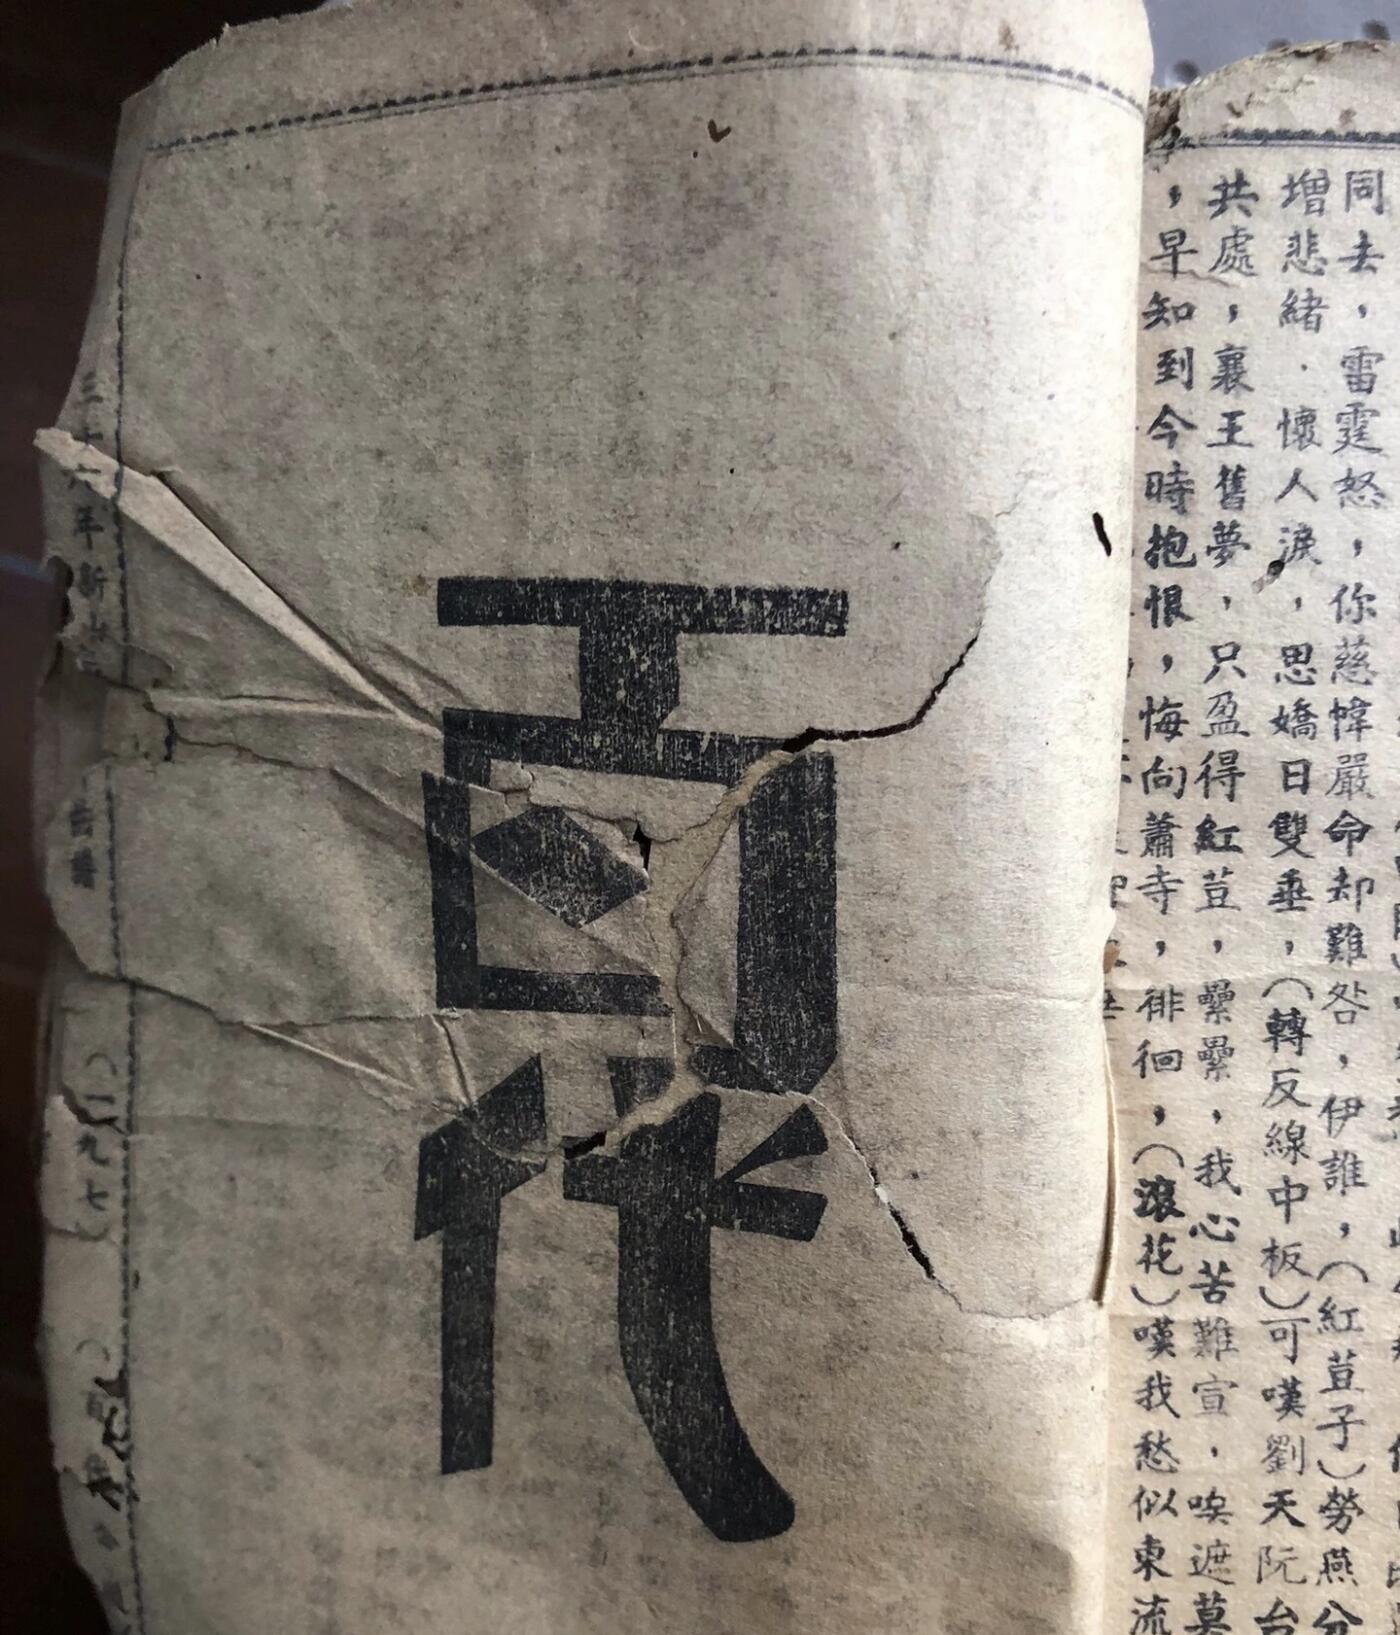 同去，雷霆怒，你慈幃嚴命却難咎，伊誰，（紅荳子）勞燕分
增悲緒．懷人淚，思嬌日雙垂，（轉反線中板）可嘆劉天阮台
共處，襄王舊夢，只盈得紅荳，纍纍，我心苦難宣．唉遮莫
，早知到今時抱恨，悔向蕭寺，徘徊，（滾花）嘆我愁似東流
百代
三十六年新